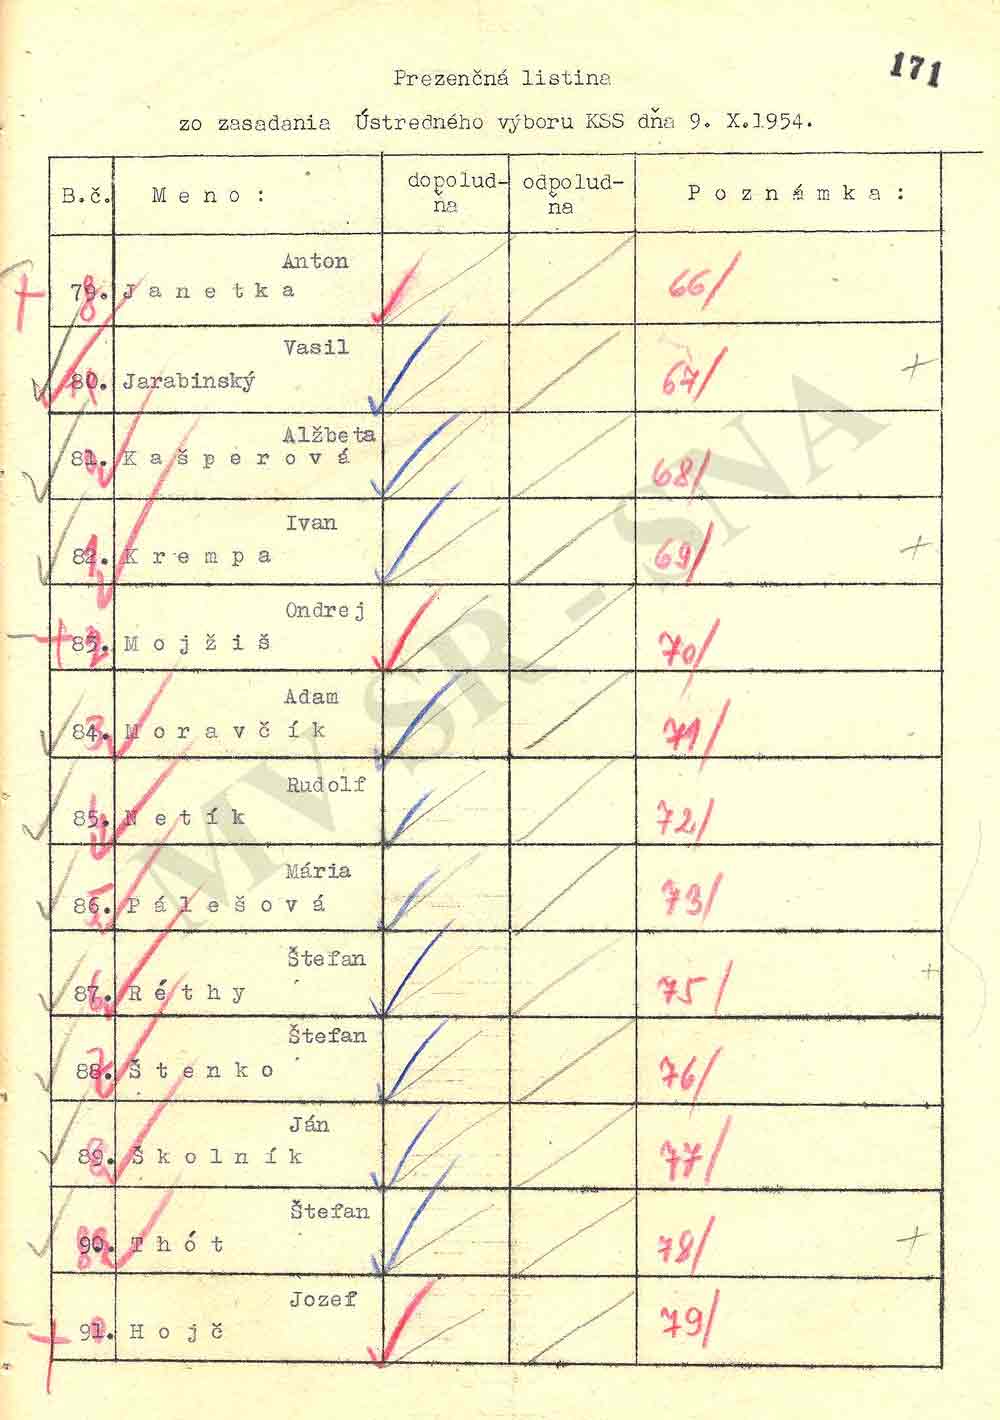 171
Prezenčná listina
zo zasadania Ústredného výboru KSS dňa 9. X.1954.
B.č. Meno: dopolud-ňa odpolud-ňa Poznámka:
Anton
79. Janetka 66/
Vasil
80. Jarabinský 67/ +
Alžbeta
81. Kašperová 68/
Ivan
82. Krempa 69/ +
Ondrej
83. Mojžiš 70/
Adam
84. Moravčík 71/
Rudolf
85. Netík 72/
Mária
86. Pálešová 73/
Štefan
87. Réthy 75/ +
Štefan
88. Štenko 76/
Ján
89. Školník 77/
Štefan
90. Thót 78/ +
Jozef
91. Hojč 79/
MV SR - SNA